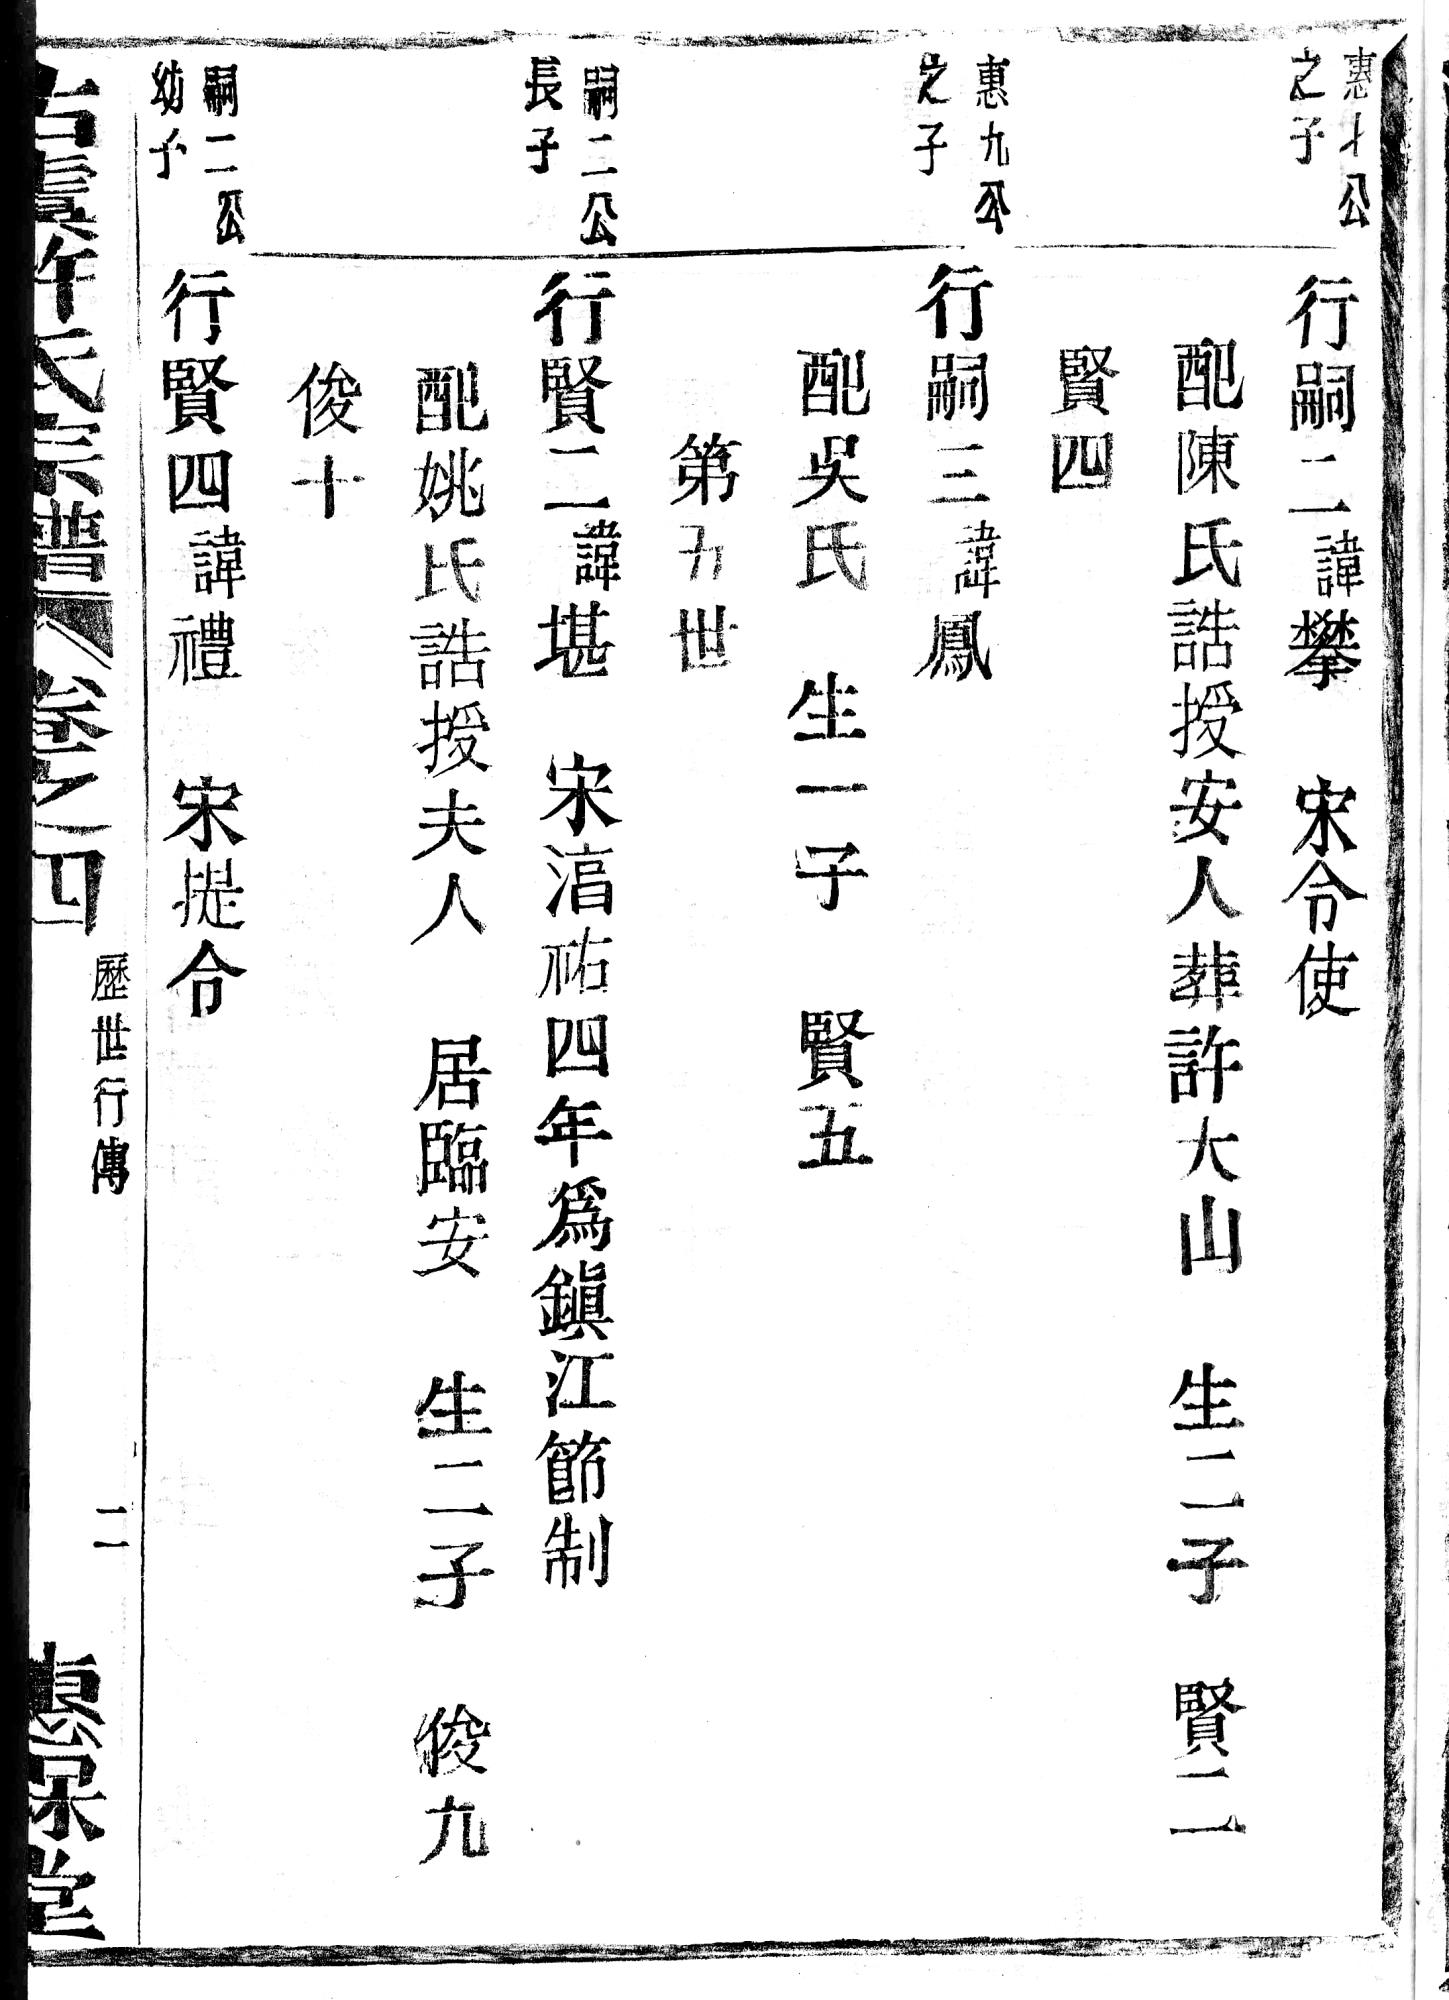 惠七公
之子
行嗣二諱攀　宋令使
配陳氏誥授安人葬許大山　生二子　賢二
賢四
惠九公
之子
行嗣三諱鳳
配吳氏　生一子　賢五
第五世
嗣二公
長子
行賢二諱堪　宋湻祐四年爲鎭江節制
配姚氏誥授夫人　居臨安　生二子　俊九
俊十
嗣二公
幼子
行賢四諱禮　宋提令
古虞許氏宗譜　卷之四
歷世行傳
二
惠保堂